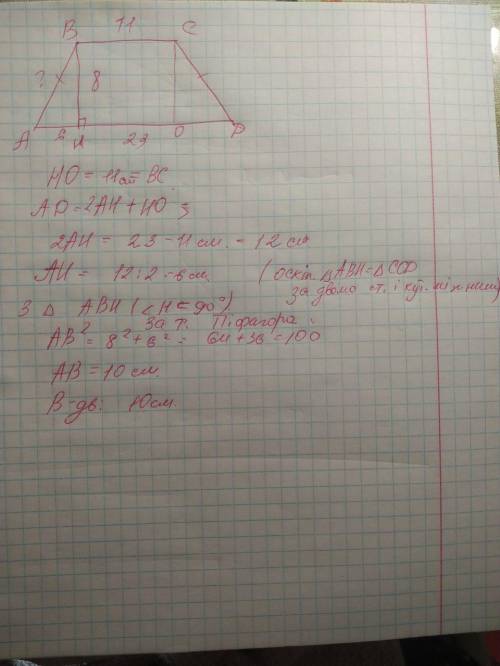 11
B C
? 8
A 6 H 23 O D
HO = 11см = BC
AD = 2AH + HO
2AH = 23 - 11 см. = 12 см
AH = 12:2 = 6 см (оскіл. △ABH = △COD
за двома ст. і кут. між ними)
З △ ABH (∠H = 90°)
За т. Піфагора:
AB² = 8² + 6² = 64 + 36 = 100
AB = 10 см.
В-дь: 10см.